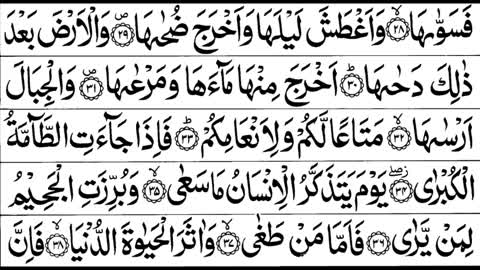 فَسَوّٰىهَا ۙ﴿۲۸﴾ وَاَغْطَشَ لَيْلَهَا وَاَخْرَجَ ضُحٰىهَا ۪﴿۲۹﴾ وَالْاَرْضَ بَعْدَ
ذٰلِكَ دَحٰىهَا ؕ﴿۳۰﴾ اَخْرَجَ مِنْهَا مَآءَهَا وَمَرْعٰىهَا ۪﴿۳۱﴾ وَالْجِبَالَ
اَرْسٰىهَا ۙ﴿۳۲﴾ مَتَاعًا لَّكُمْ وَلِاَنْعَامِكُمْ ؕ﴿۳۳﴾ فَاِذَا جَآءَتِ الطَّآمَّةُ
الْكُبْرٰى ۖ﴿۳۴﴾ يَوْمَ يَتَذَكَّرُ الْاِنْسَانُ مَا سَعٰى ۙ﴿۳۵﴾ وَبُرِّزَتِ الْجَحِيْمُ
لِمَنْ يَّرٰى ﴿۳۶﴾ فَاَمَّا مَنْ طَغٰى ۙ﴿۳۷﴾ وَاٰثَرَ الْحَيٰوةَ الدُّنْيَا ۙ﴿۳۸﴾ فَاِنَّ